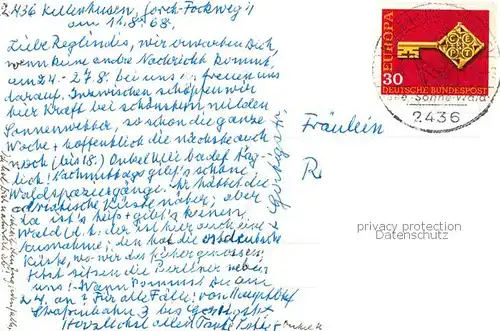 2436 Kellenhusen, Gorch-Fockweg 11
am 11.8.68.
Liebe Reglindis, wir erwarten Dich,
wenn keine andre Nachricht kommt,
am 24.-27.8. bei uns! freuen uns
darauf. Inzwischen schöpfen wir
hier Kraft bei schönstem milden
Sonnenwetter, so schon die ganze
Woche + hoffentlich die nächste auch
noch (bis 18.) Onkel badet täg-
lich! Nachmittags gibt's schöne
Waldspaziergänge. Ihr hättet die
adriatische Küste näher; aber
da ist's heiß + gibt's keinen
Wald (d. h. der ist hier auch eine
Ausnahme; den hat die ostdeutsche
Küste, wo wir das früher genossen.
Jetzt sitzen die Berliner neben
uns! Wann kommst Du am
24. an? Für alle Fälle: vom Hauptbhf
Straßenbahn 3 bis
Herzlichst allen Tante
Fräulein
R
EUROPA
CEPT
30
DEUTSCHE BUNDESPOST
Sonne-Wald
2436
privacy protection
Datenschutz